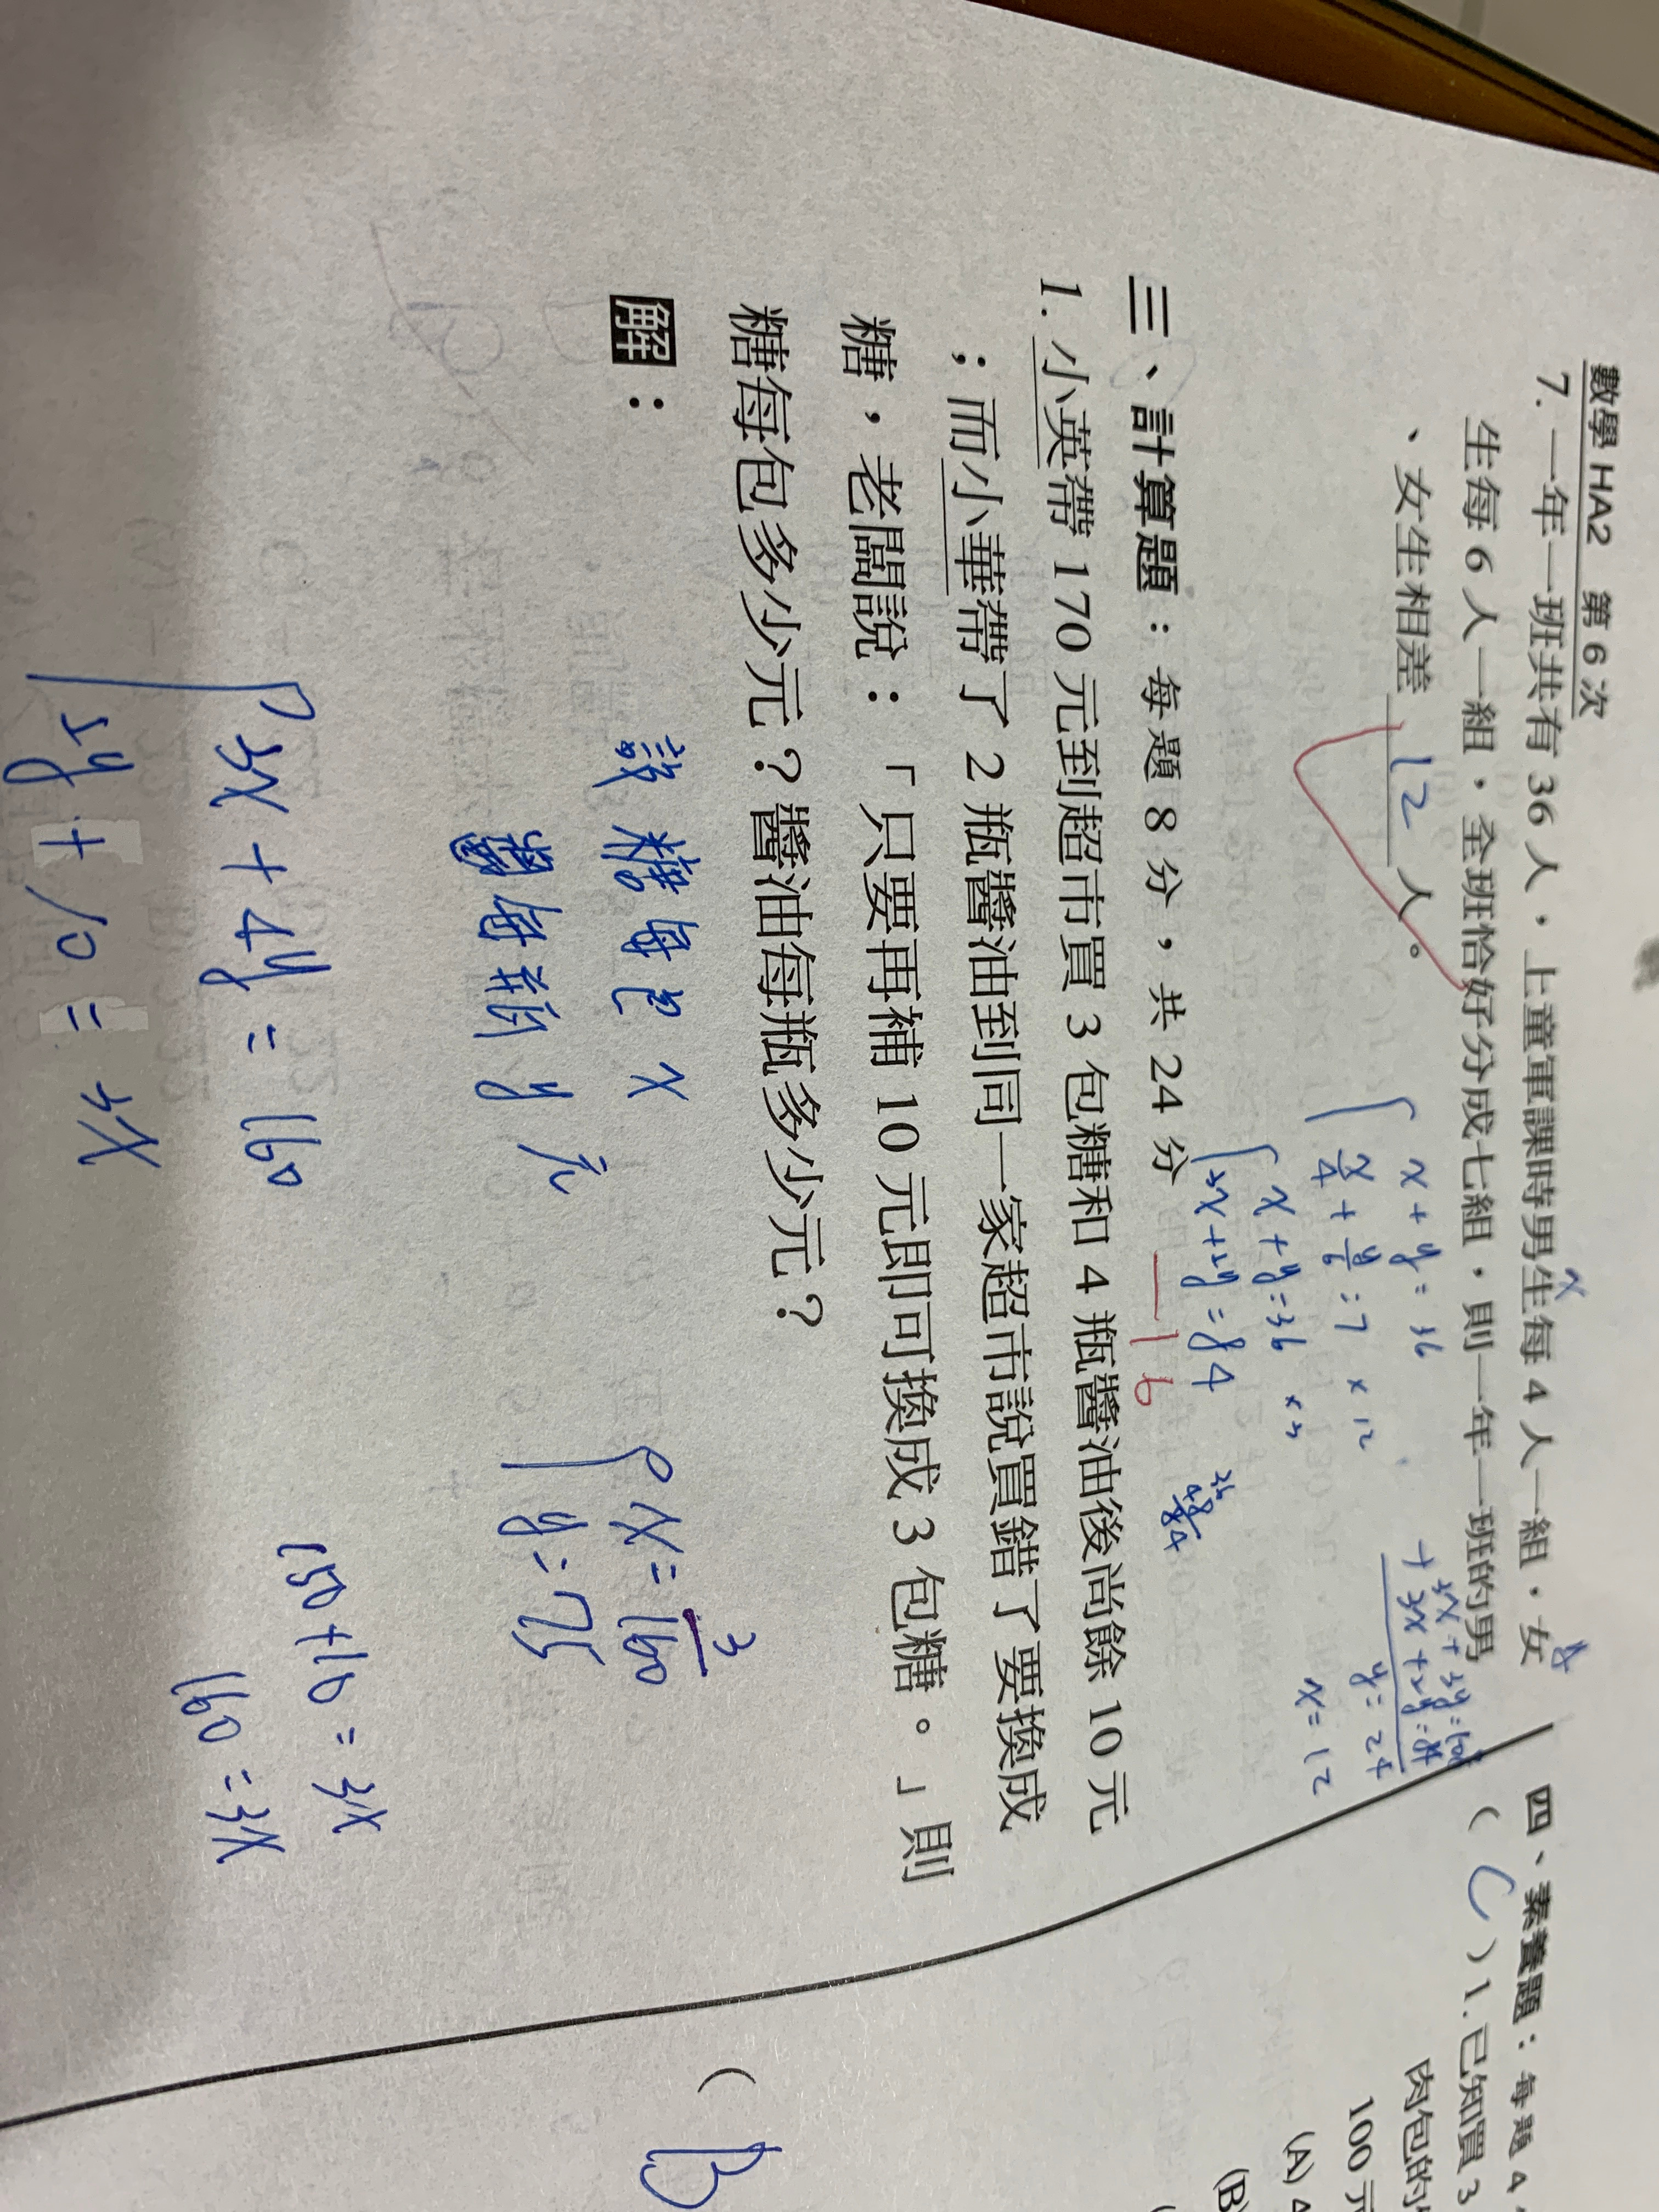 數學 HA2 第 6 次
7. 一年一班共有 36 人,上童軍課時男生每 4 人一組,女
生每 6 人一組,全班恰好分成七組,則一年一班的男
、女生相差 12 人。
x
y
x + y = 36
x/4 + y/6 = 7 × 12
x + y = 36 × 3
3x + 2y = 84
y = 24
x = 12
三、計算題:每題 8 分,共 24 分
16
1. 小英帶 170 元到超市買 3 包糖和 4 瓶醬油後尚餘 10 元
;而小華帶了 2 瓶醬油到同一家超市說買錯了要換成
糖,老闆說:「只要再補 10 元即可換成 3 包糖。」則
糖每包多少元?醬油每瓶多少元?
解:
設糖每包 x
每瓶 y 元
y = 25
3x + 4y = 160
150 + 10 = 3x
160 = 3x
四、素養題:每題 4
( C ) 1. 已知買 3
肉包的
100 元
(A) 4
(B)
( B